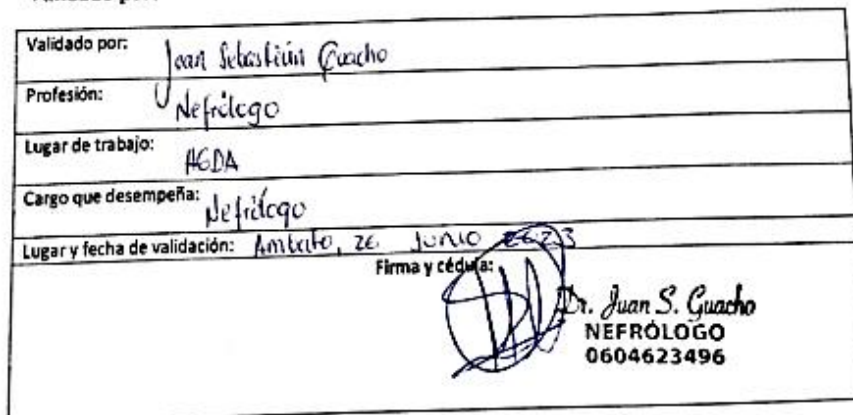 Validado por: Juan Sebastián Guacho
Profesión: Nefrólogo
Lugar de trabajo: HGDA
Cargo que desempeña: Nefrólogo
Lugar y fecha de validación: Ambato, 26 Junio 2023
Firma y cédula:
Dr. Juan S. Guacho
NEFRÓLOGO
0604623496